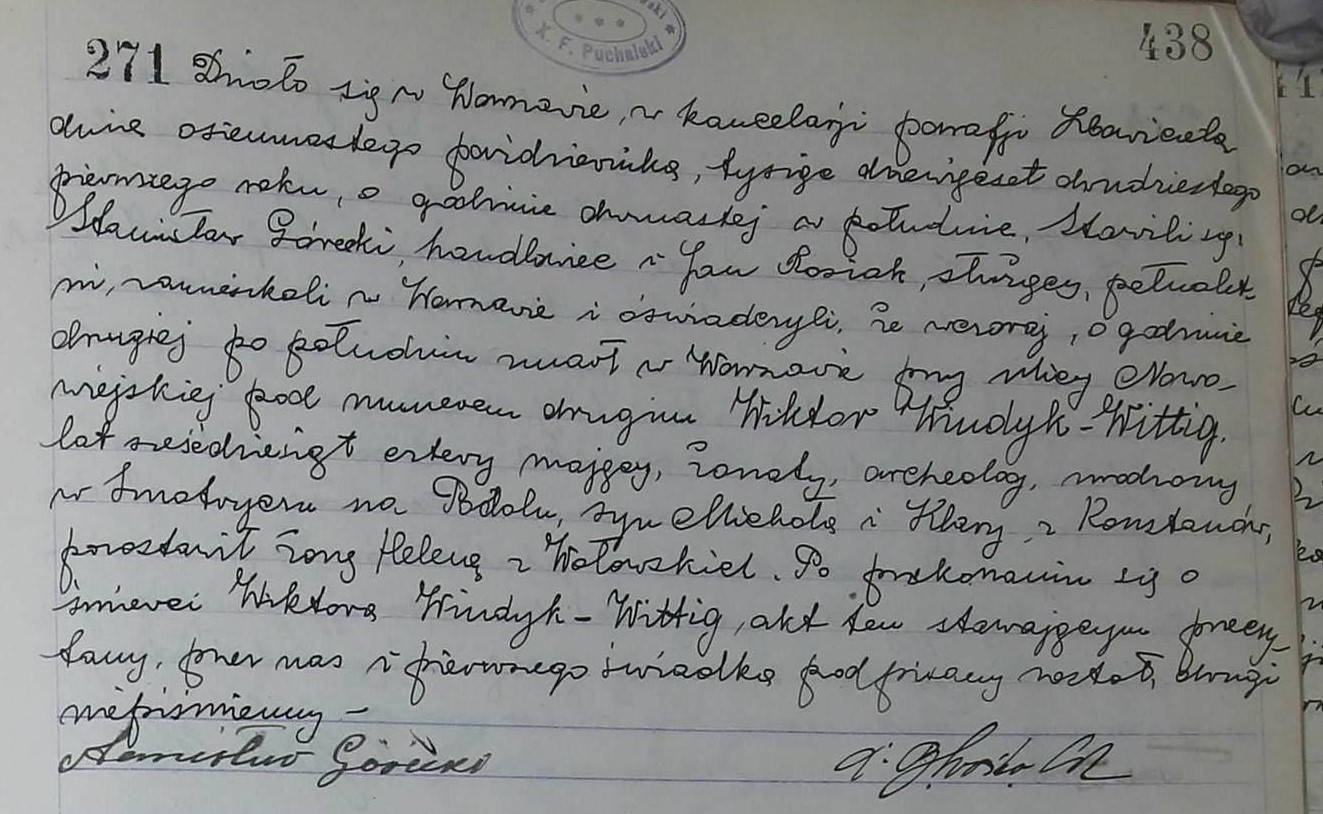 X. F. Puchalski
438
271 Działo się w Warszawie, w kancelarji parafji Zbawiciela
dnia osiemnastego października, tysiąc dziewięćset dwudziestego
pierwszego roku, o godzinie dwunastej w południe. Stawili się:
Stanisław Górecki, handlowiec i Jan Rosiak, służący, pełnolet-
ni, zamieszkali w Warszawie i oświadczyli, że wczoraj, o godzinie
drugiej po południu zmarł w Warszawie przy ulicy Nowo-
wiejskiej pod numerem drugim Wiktor Windyk-Wittig.
lat sześćdziesiąt cztery mający, żonaty, archeolog, urodzony
w Smotryczu na Podolu, syn Michała i Klary, z Konstanów,
pozostawił żonę Helenę z Wołowskich. Po przekonaniu się o
śmierci Wiktora Windyk-Wittig, akt ten stawającym przeczy-
tany, przez nas i pierwszego świadka podpisany został, drugi
niepiśmienny -
Stanisław Górecki